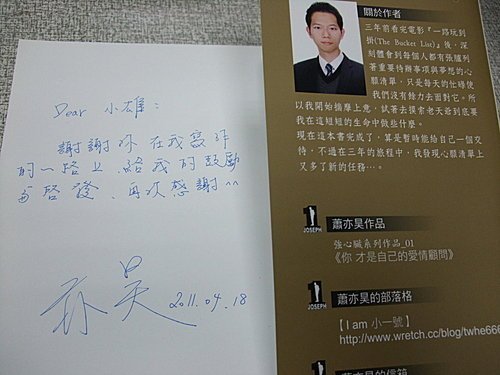 Dear 小雄：
謝謝你在我寫作
的一路上給我的鼓勵
與啓發、再次感謝^^
亦昊
2011.04.18
關於作者
三年前看完電影『一路玩到
掛(The Bucket List)』後，深
刻體會到每個人都有張臚列
著重要待辦事項與夢想的心
願清單，只是每天的忙碌使
我們沒餘力去面對它。所
以我開始揣摩上意，試著去摸索老天爺到底要
我在這短短的生命中做些什麼。
現在這本書完成了，算是暫時能給自己一個交
待，不過在三年的旅程中，我發現心願清單上
又多了新的任務…。
JOSEPH
蕭亦昊作品
強心臟系列作品_01
《你 才是自己的愛情顧問》
JOSEPH
蕭亦昊的部落格
【I am 小一號】
http://www.wretch.cc/blog/twhe666
蕭亦昊的信箱